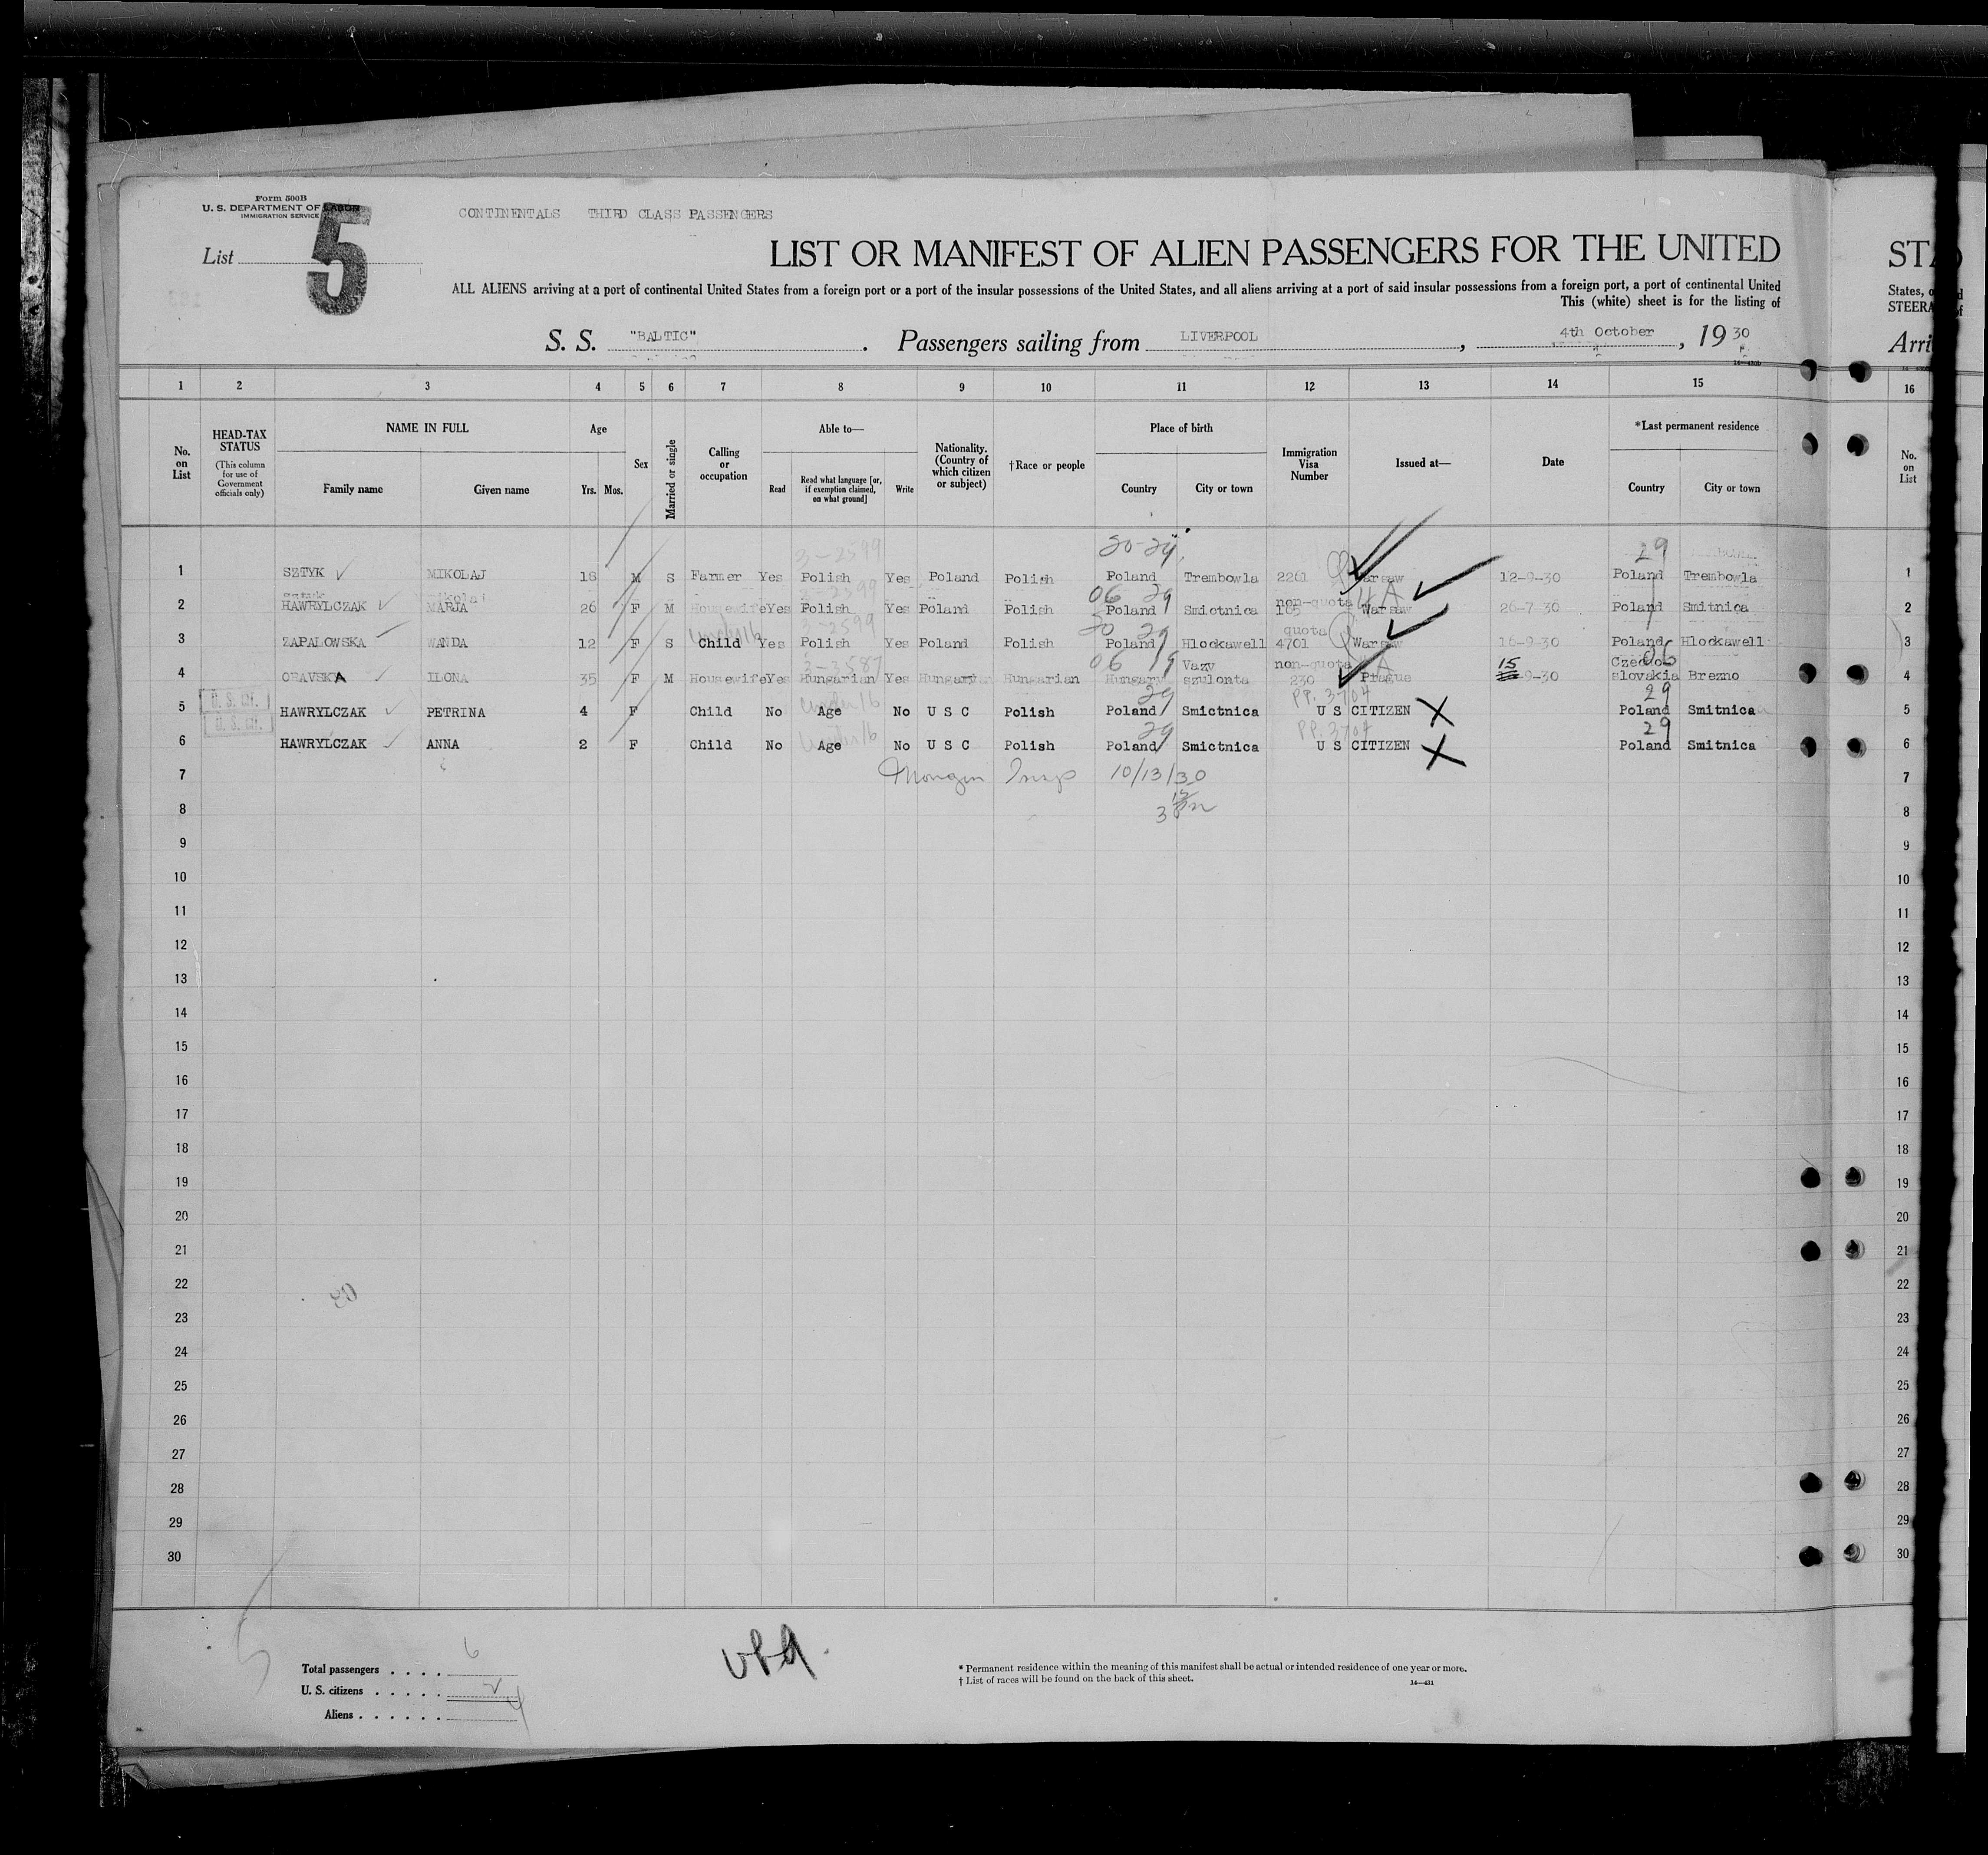 Form 500B
U. S. DEPARTMENT OF LABOR
IMMIGRATION SERVICE
5
CONTINENTALS THIRD CLASS PASSENGERS
List
LIST OR MANIFEST OF ALIEN PASSENGERS FOR THE UNITED
ALL ALIENS arriving at a port of continental United States from a foreign port or a port of the insular possessions of the United States, and all aliens arriving at a port of said insular possessions from a foreign port, a port of continental United
This (white) sheet is for the listing of
S. S. "BALTIC". Passengers sailing from LIVERPOOL, 4th October, 19 30
STA
States, o
STEERA
Arri
1 2 3 4 5 6 7 8 9 10 11 12 13 14 15 16
No. on List
HEAD-TAX STATUS
(This column for use of Government officials only)
NAME IN FULL
Family name Given name
Age
Yrs. Mos.
Sex
Married or single
Calling or occupation
Able to—
Read
Read what language [or, if exemption claimed, on what ground]
Write
Nationality. (Country of which citizen or subject)
†Race or people
Place of birth
Country City or town
Immigration Visa Number
Issued at—
Date
*Last permanent residence
Country City or town
No. on List
3-2599 20-29 29
1 SZTYK MIKOLAJ 18 M S Farmer Yes Polish Yes Poland Polish Poland Trembowla 2261 Q Warsaw 12-9-30 Poland Trembowla 1
3-2599 06 29 non-quota 4A
2 HAWRYLCZAK MARJA 26 F M Housewife Yes Polish Yes Poland Polish Poland Smictnica 165 Warsaw 26-7-30 Poland Smitnica 2
under 16 3-2599 20 29 quota Q
3 ZAPALOWSKA WANDA 12 F S Child Yes Polish Yes Poland Polish Poland Hlockawell 4701 Warsaw 16-9-30 Poland Hlockawell 3
3-3587 06 19 Vazy non-quota A 15 Czecho 06
4 ORAVSKA ILONA 35 F M Housewife Yes Hungarian Yes Hungarian Hungarian Hungary szulonta 230 Prague 9-30 slovakia Brezno 4
U. S. Cit. under 16 29 PP. 3704 29
5 HAWRYLCZAK PETRINA 4 F Child No Age No U S C Polish Poland Smictnica U S CITIZEN X Poland Smitnica 5
U. S. Cit. under 16 29 PP. 3704 29
6 HAWRYLCZAK ANNA 2 F Child No Age No U S C Polish Poland Smictnica U S CITIZEN X Poland Smitnica 6
7 Insp 10/13/30 7
8 8
9 9
10 10
11 11
12 12
13 13
14 14
15 15
16 16
17 17
18 18
19 19
20 20
21 21
22 22
23 23
24 24
25 25
26 26
27 27
28 28
29 29
30 30
Total passengers . . . . 6
U. S. citizens . . . . . 2
Aliens . . . . . . 4
* Permanent residence within the meaning of this manifest shall be actual or intended residence of one year or more.
† List of races will be found on the back of this sheet.
14—431